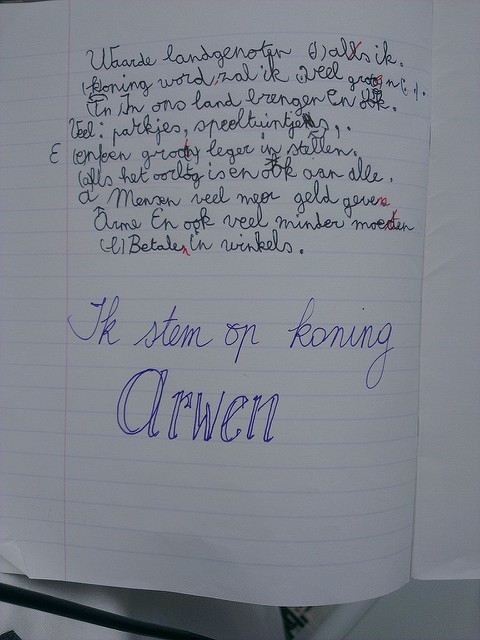 Waarde landgenoten (,) alls ik.
koning word, zal ik veel groen (.).
En In ons land brengen En ook.
Veel: parkjes, speeltuintjes,.
E (e)n een grooty leger in stellen.
(alls het oorlog is en ook aan alle.
a Mensen veel meer geld geven
Arme En ook veel minder moeten
(-t.) Betalen in winkels.
Ik stem op koning
Arwen